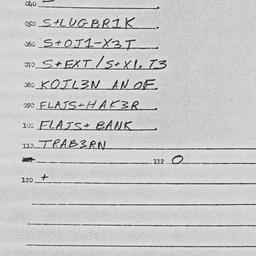 040
050 S+LUGBRIK
060 S+OJ1-X3T
070 S+EXT/S+XI.T3
080 KOJL3N AN OF.
090 FLAJS+HAK3R
100 FLAJS+ BANK
110 TPAB3RN
112 O
120 +